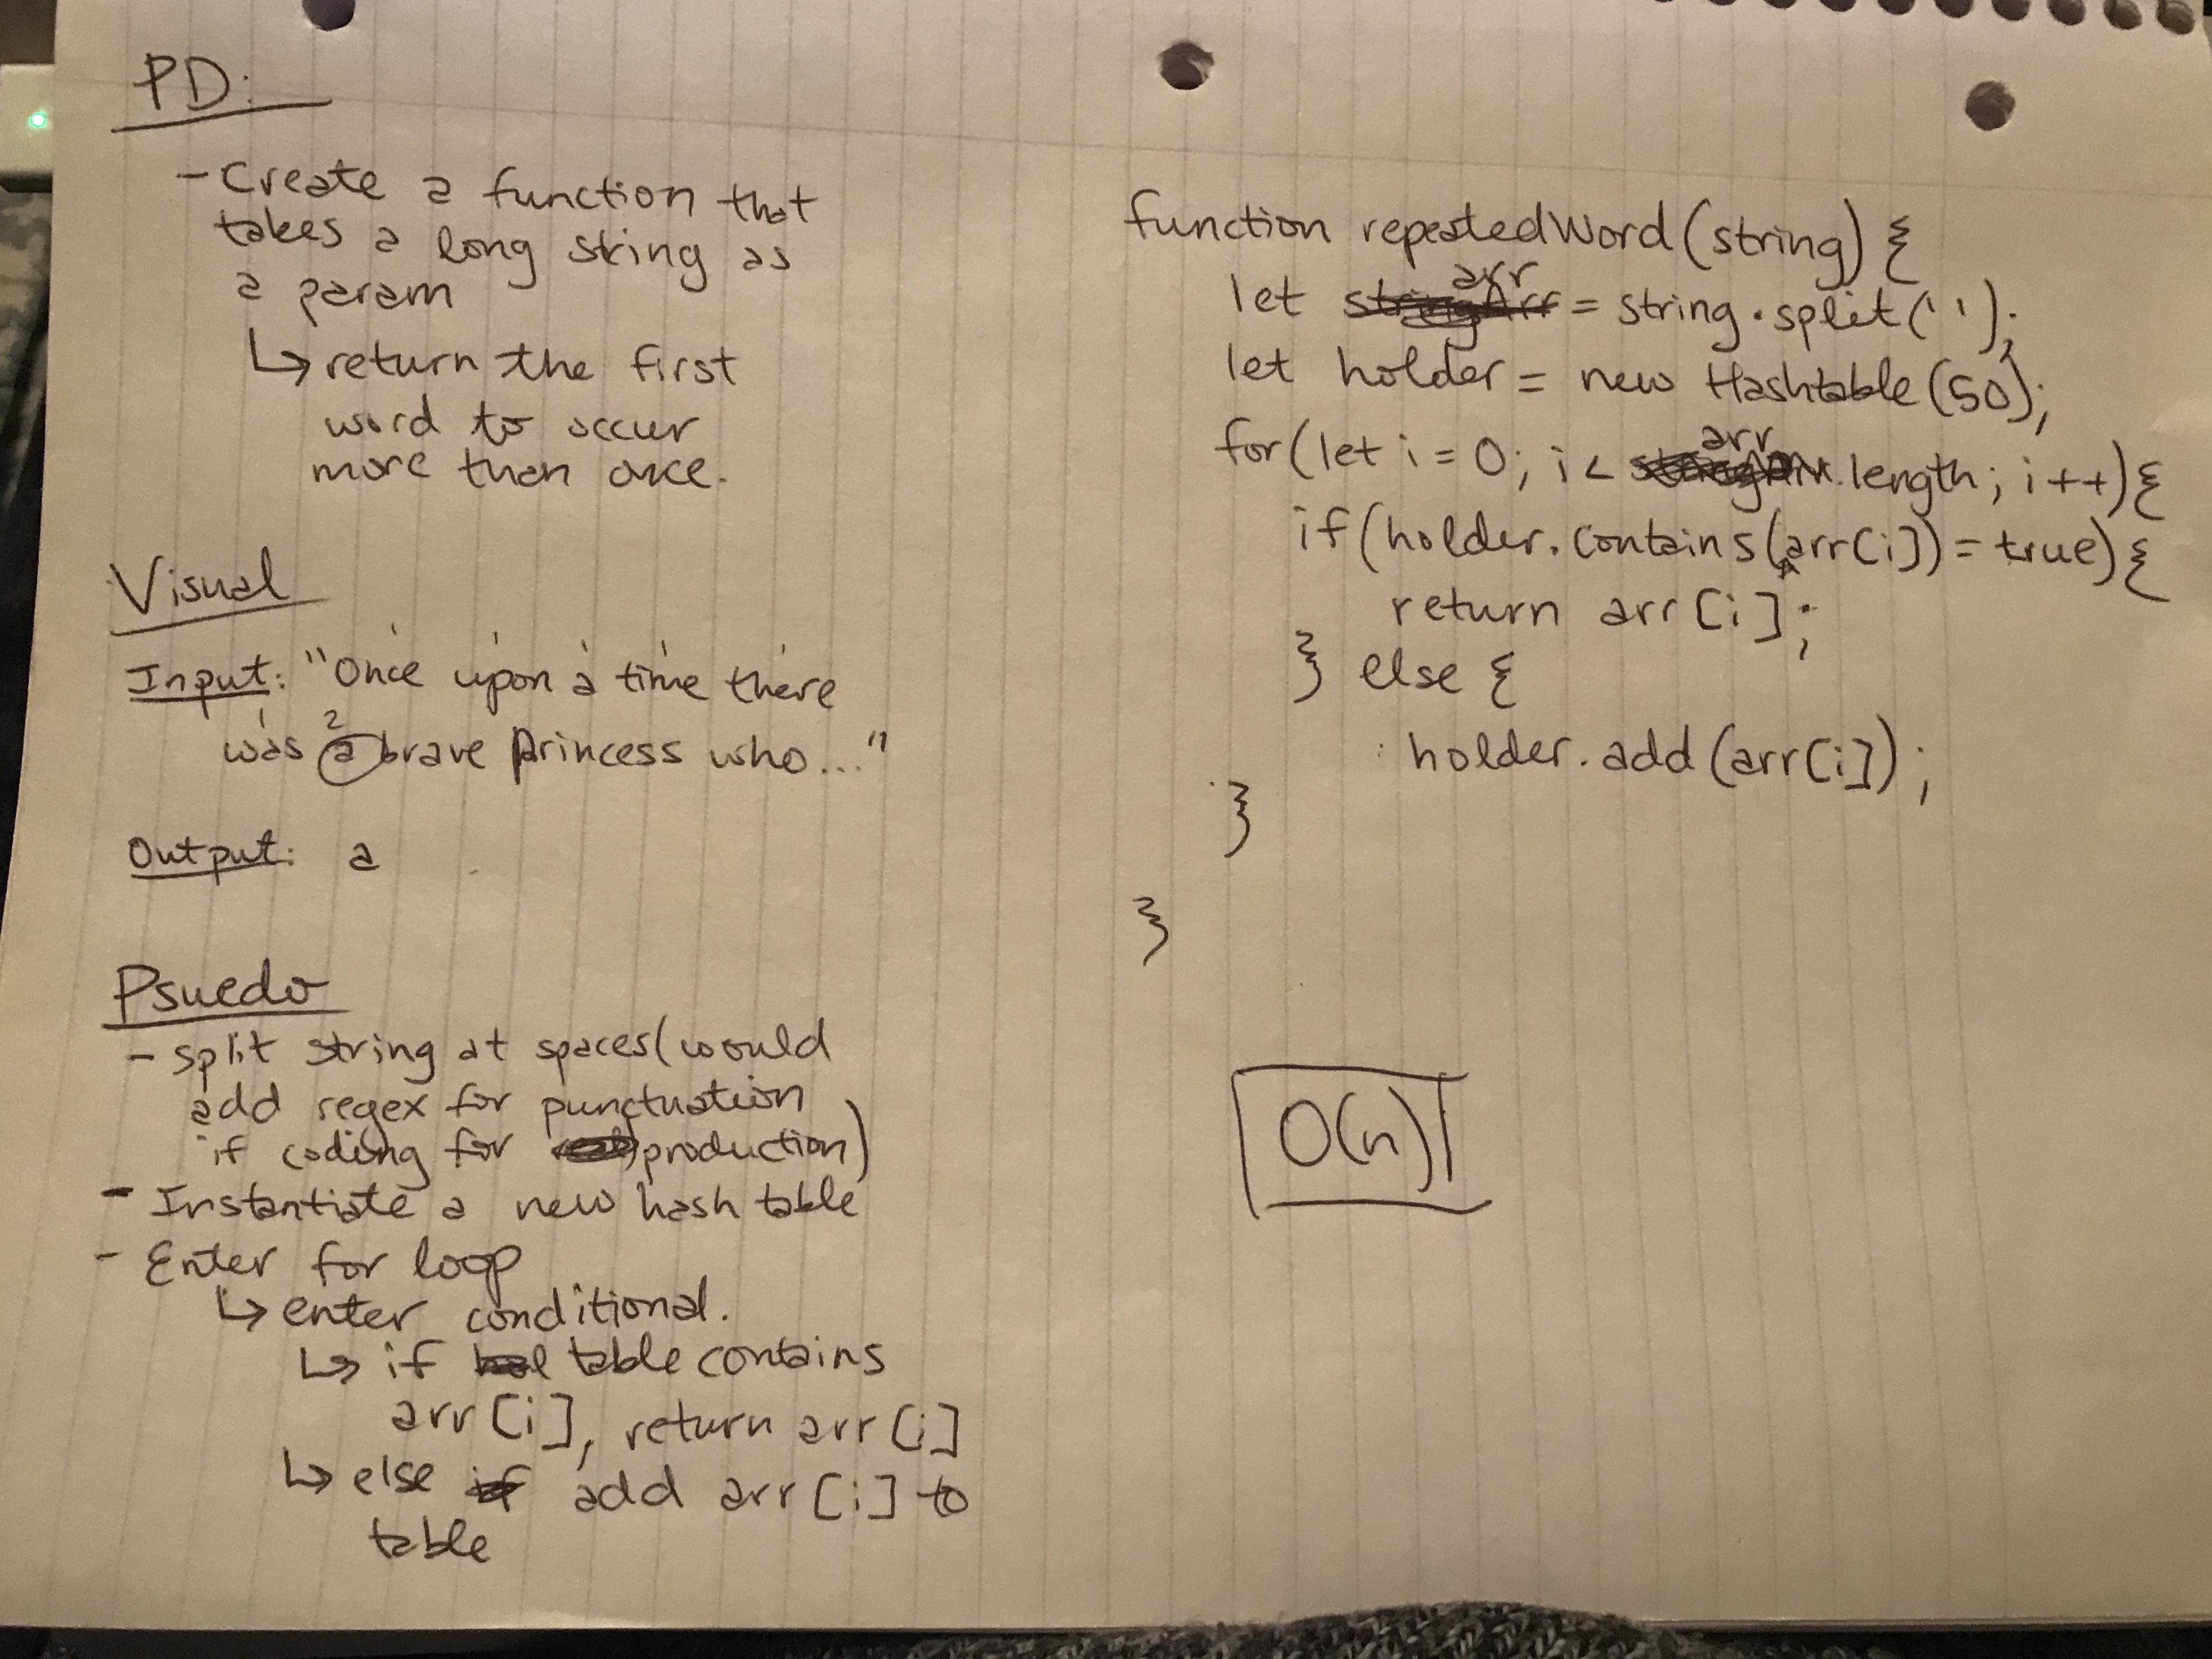 PD:
- Create a function that
takes a long string as
a param
↳ return the first
word to occur
more than once.
Visual
Input: "Once upon a time there
was a brave princess who..."
Output: a
Psuedo
- split string at spaces (would
add regex for punctuation
if coding for production)
- Instantiate a new hash table
- Enter for loop
↳ enter conditional.
↳ if table contains
arr[i], return arr[i]
↳ else add arr[i] to
table
function repeatedWord(string) {
let arr = string.split(' ');
let holder = new Hashtable(50);
for(let i = 0; i < arr.length; i++){
if(holder.contains(arr[i]) = true){
return arr[i];
} else {
holder.add(arr[i]);
}
}
O(n)